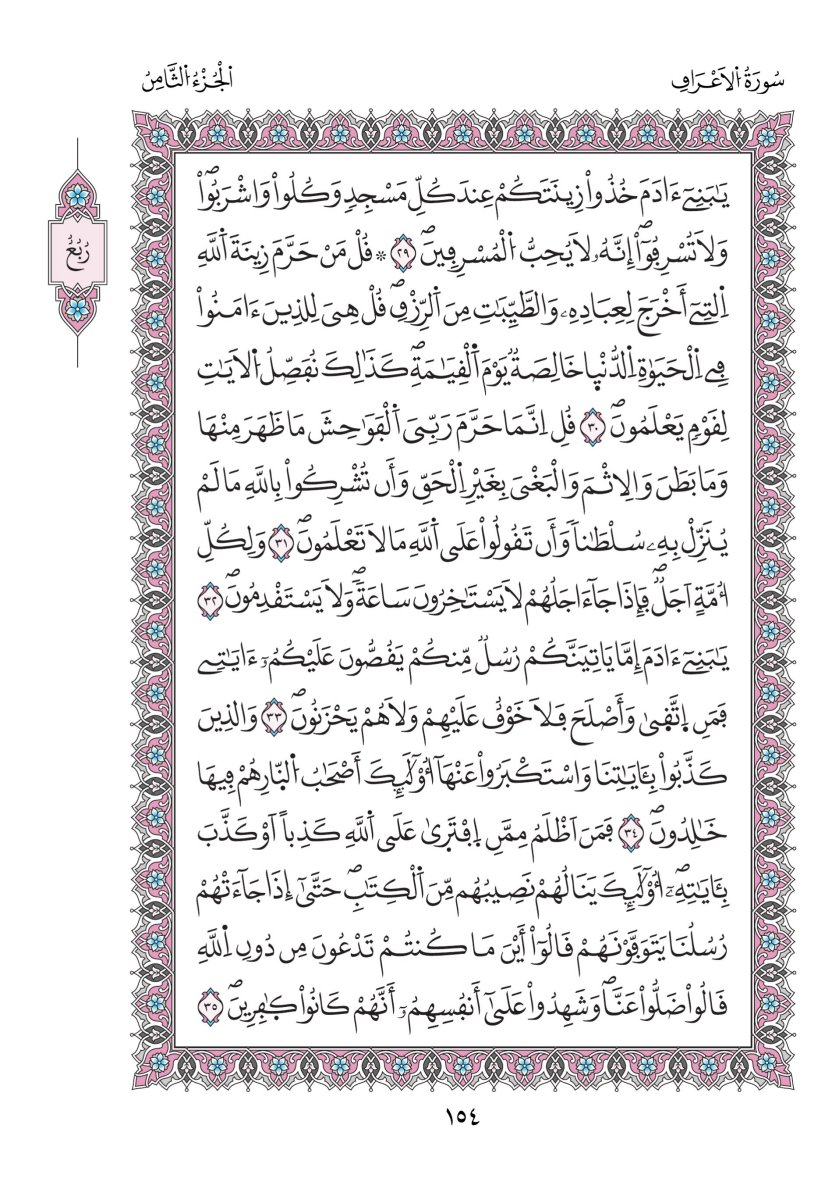 سُورَةُ اُ۬لَاعْرَافِ
اَ۬لْجُزْءُ اُ۬لثَّامِنُ
رُبُعُ
يَٰبَنِےٓ ءَادَمَ خُذُواْ زِينَتَكُمْ عِندَ كُلِّ مَسْجِدٖ وَكُلُواْ وَاشْرَبُواْۖ
وَلَا تُسْرِفُوٓاْۖ إِنَّهُۥ لَا يُحِبُّ اُ۬لْمُسْرِفِينَۖ ٢٩ ۞ قُلْ مَنْ حَرَّمَ زِينَةَ اَ۬للَّهِ
اِ۬لتِےٓ أَخْرَجَ لِعِبَادِهِۦ وَالطَّيِّبَٰتِ مِنَ اَ۬لرِّزْقِۖ قُلْ هِيَ لِلذِينَ ءَامَنُواْ
فِے اِ۬لْحَيَوٰةِ اِ۬لدُّنْي۪ا خَالِصَةٞ يَوْمَ اَ۬لْقِيَٰمَةِۖ كَذَٰلِكَ نُفَصِّلُ اُ۬لَايَٰتِ
لِقَوْمٖ يَعْلَمُونَۖ ٣٠ قُلِ اِنَّمَا حَرَّمَ رَبِّيَ اَ۬لْفَوَٰحِشَ مَا ظَهَرَ مِنْهَا
وَمَا بَطَنَ وَالِاثْمَ وَالْبَغْيَ بِغَيْرِ اِ۬لْحَقِّ وَأَن تُشْرِكُواْ بِاللَّهِ مَا لَمْ
يُنَزِّلْ بِهِۦ سُلْطَٰناٗ وَأَن تَقُولُواْ عَلَى اَ۬للَّهِ مَا لَا تَعْلَمُونَۖ ٣١ وَلِكُلِّ
أُمَّةٍ اَجَلٞۖ فَإِذَا جَآءَ اجَلُهُمْ لَا يَسْتَٰخِرُونَ سَاعَةٗۖ وَلَا يَسْتَقْدِمُونَۖ ٣٢
يَٰبَنِےٓ ءَادَمَ إِمَّا يَاتِيَنَّكُمْ رُسُلٞ مِّنكُمْ يَقُصُّونَ عَلَيْكُمُۥٓ ءَايَٰتِے
فَمَنِ اِ۪تَّق۪يٰ وَأَصْلَحَ فَلَا خَوْفٌ عَلَيْهِمْ وَلَا هُمْ يَحْزَنُونَۖ ٣٣ وَالذِينَ
كَذَّبُواْ بِـَٔايَٰتِنَا وَاسْتَكْبَرُواْ عَنْهَآ أُوْلَٰٓئِكَ أَصْحَٰبُ اُ۬لنّ۪ارِ هُمْ فِيهَا
خَٰلِدُونَۖ ٣٤ فَمَنَ اَظْلَمُ مِمَّنِ اِ۪فْتَر۪يٰ عَلَى اَ۬للَّهِ كَذِباً اَوْ كَذَّبَ
بِـَٔايَٰتِهِۦٓۖ أُوْلَٰٓئِكَ يَنَالُهُمْ نَصِيبُهُم مِّنَ اَ۬لْكِتَٰبِۖ حَتَّىٰٓ إِذَا جَآءَتْهُمْ
رُسُلُنَا يَتَوَفَّوْنَهُمْ قَالُوٓاْ أَيْنَ مَا كُنتُمْ تَدْعُونَ مِن دُونِ اِ۬للَّهِ
قَالُواْ ضَلُّواْ عَنَّاۖ وَشَهِدُواْ عَلَىٰٓ أَنفُسِهِمُۥٓ أَنَّهُمْ كَانُواْ كٰ۪فِرِينَۖ ٣٥
١٥٤